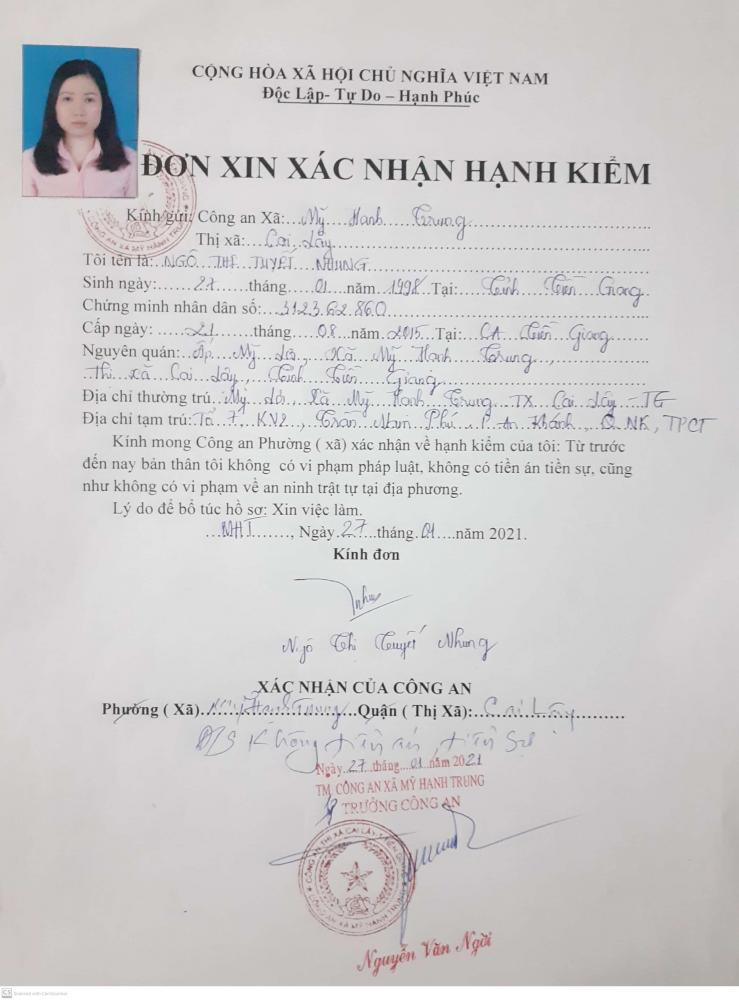 CỘNG HÒA XÃ HỘI CHỦ NGHĨA VIỆT NAM
Độc Lập- Tự Do – Hạnh Phúc
ĐƠN XIN XÁC NHẬN HẠNH KIỂM
Kính gửi: Công an Xã:...Mỹ Hạnh Trung
Thị xã:...Cai Lậy
Tôi tên là:..NGÔ THỊ TUYẾT NHUNG
Sinh ngày:......27......tháng....01....năm..1998..Tại:...Tỉnh Tiền Giang
Chứng minh nhân dân số:...312362860
Cấp ngày:......21......tháng....08...năm..2015..Tại:...CA Tiền Giang
Nguyên quán:..Ấp Mỹ Lợi, Xã Mỹ Hạnh Trung,
Thị xã Cai Lậy, Tỉnh Tiền Giang
Địa chỉ thường trú:.Mỹ Lợi, Xã Mỹ Hạnh Trung TX Cai Lậy - TG
Địa chỉ tạm trú:Tổ 7, KV2, Trần Nam Phú, P. An Khánh, Q.NK, TPCT
Kính mong Công an Phường ( xã) xác nhận về hạnh kiểm của tôi: Từ trước
đến nay bản thân tôi không có vi phạm pháp luật, không có tiền án tiền sự, cũng
như không có vi phạm về an ninh trật tự tại địa phương.
Lý do để bổ túc hồ sơ: Xin việc làm.
...MHT......., Ngày.27..tháng.01....năm 2021.
Kính đơn
Nhung
Ngô Thị Tuyết Nhung
XÁC NHẬN CỦA CÔNG AN
Phường ( Xã)..Mỹ Hạnh Trung...Quận ( Thị Xã):...Cai Lậy
Đ/S Không tiền án, tiền sự
Ngày..27..tháng...01 năm 2021
TM. CÔNG AN XÃ MỸ HẠNH TRUNG
TRƯỞNG CÔNG AN
CÔNG AN THỊ XÃ CAI LẬY TIỀN GIANG
CÔNG AN XÃ MỸ HẠNH TRUNG
Nguyễn Văn Ngời
CS Scanned with CamScanner